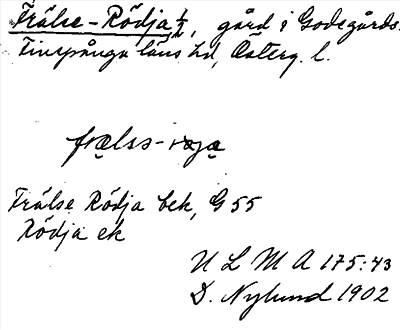 Frälse-Rödja 1/2, gård i Godegårds
Finspånga läns hd, Österg. l.
frælsə-
Frälse Rödja bek, G 55
Rödja ek
U L M A 175:43
D. Nylund 1902